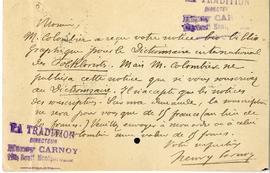 Monsieur,
M. Colombier a reçu votre notice bio-biblio-
graphique pour le Dictionnaire international
des Folkloristes. Mais M. Colombier ne
publiera cette notice que si vous souscrivez
au Dictionnaire. Il n'accepte que les notices
des souscripteurs. Sur ma demande, la souscription
ne sera pour vous que de 15 francs au lieu de
francs. Veuillez envoyer à mon ordre ou à celui
Colombier un valeur de 15 francs.
Votre
Henry Carnoy
LA TRADITION
DIRECTEUR
Henry CARNOY
LA TRADITION
DIRECTEUR
Henry CARNOY